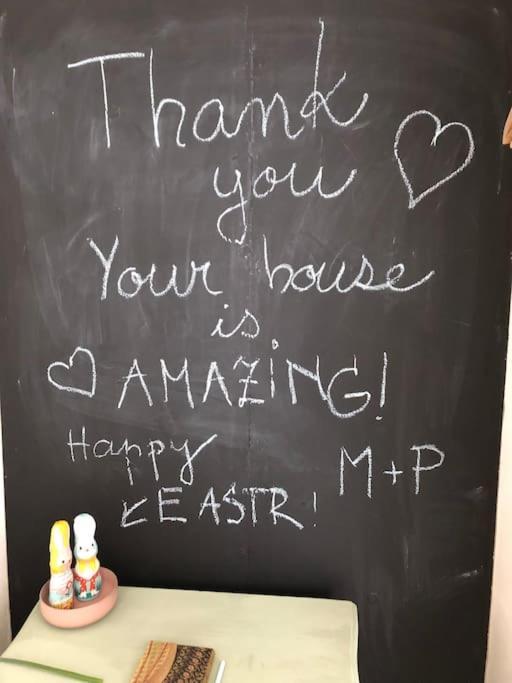 Thank
you
Your house
is
AMAZiNG!
Happy
EASTR!
M+P